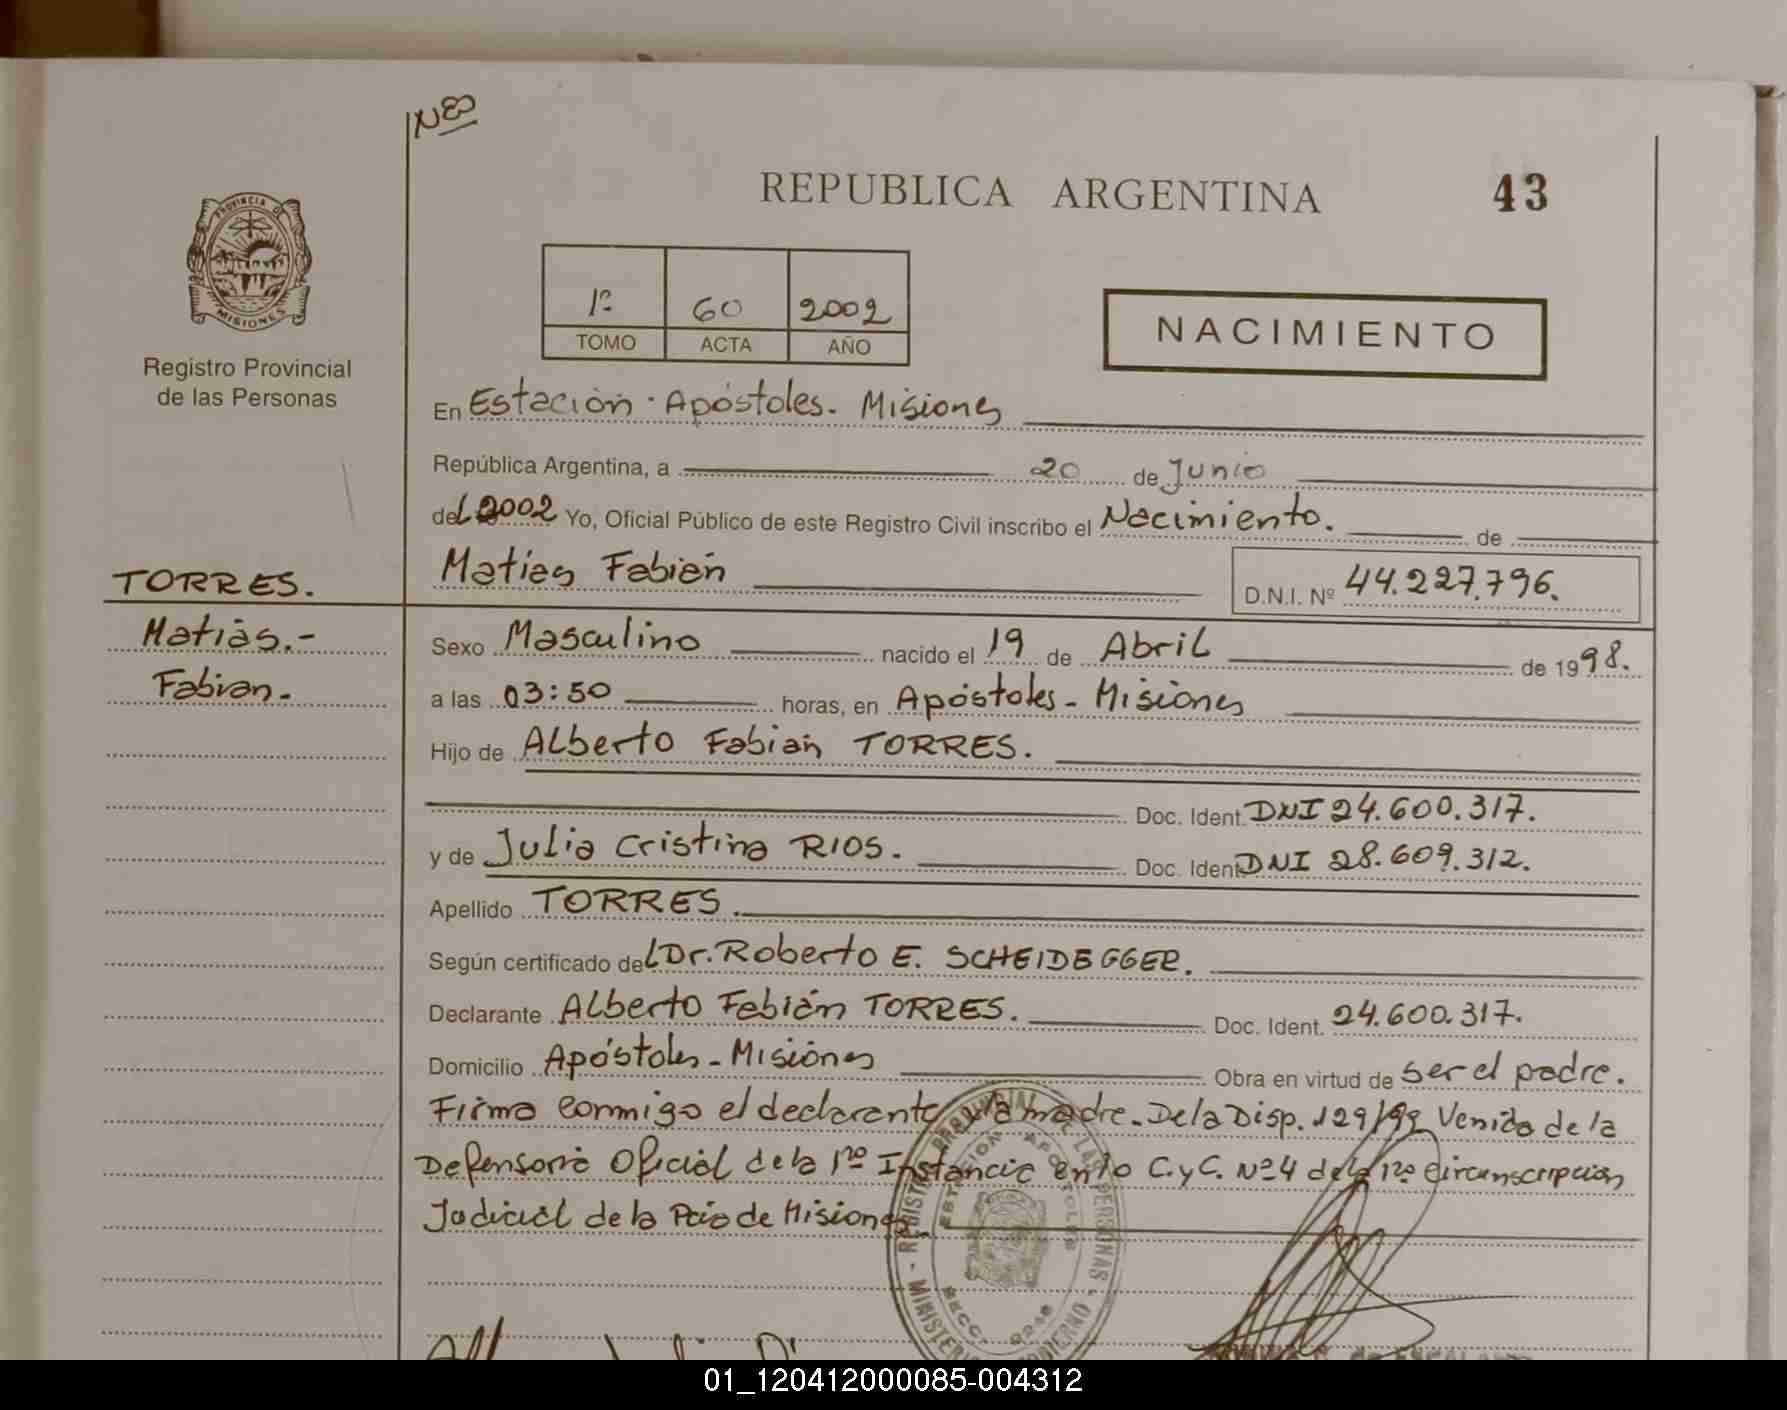 NES
REPUBLICA ARGENTINA
43
PROVINCIA DE
MISIONES
Registro Provincial
de las Personas
1º 60 2002
TOMO ACTA AÑO
NACIMIENTO
En Estación - Apóstoles - Misiones
República Argentina, a 20 de Junio
del 2002 Yo, Oficial Público de este Registro Civil inscribo el Nacimiento. de
Matías Fabián
D.N.I. Nº 44.227.796.
TORRES.
Matías.-
Fabian.-
Sexo Masculino nacido el 19 de Abril de 1998.
a las 03:50 horas, en Apóstoles - Misiones
Hijo de Alberto Fabián TORRES.
Doc. Ident. DNI 24.600.317.
y de Julia Cristina RIOS. Doc. Ident. DNI 28.609.312.
Apellido TORRES
Según certificado del Dr. Roberto E. SCHEIDEGGER.
Declarante Alberto Fabián TORRES. Doc. Ident. 24.600.317.
Domicilio Apóstoles - Misiones Obra en virtud de ser el padre.
Firma conmigo el declarante y la madre. De la Disp. 129/99 Venida de la
Defensoria Oficial de la 1ra Instancia en lo C. y C. Nº 4 de la 1ra Circunscripción
Judicial de la Pcia de Misiones
REGISTRO PROVINCIAL DE LAS PERSONAS
ESTACION APOSTOLES
01_120412000085-004312